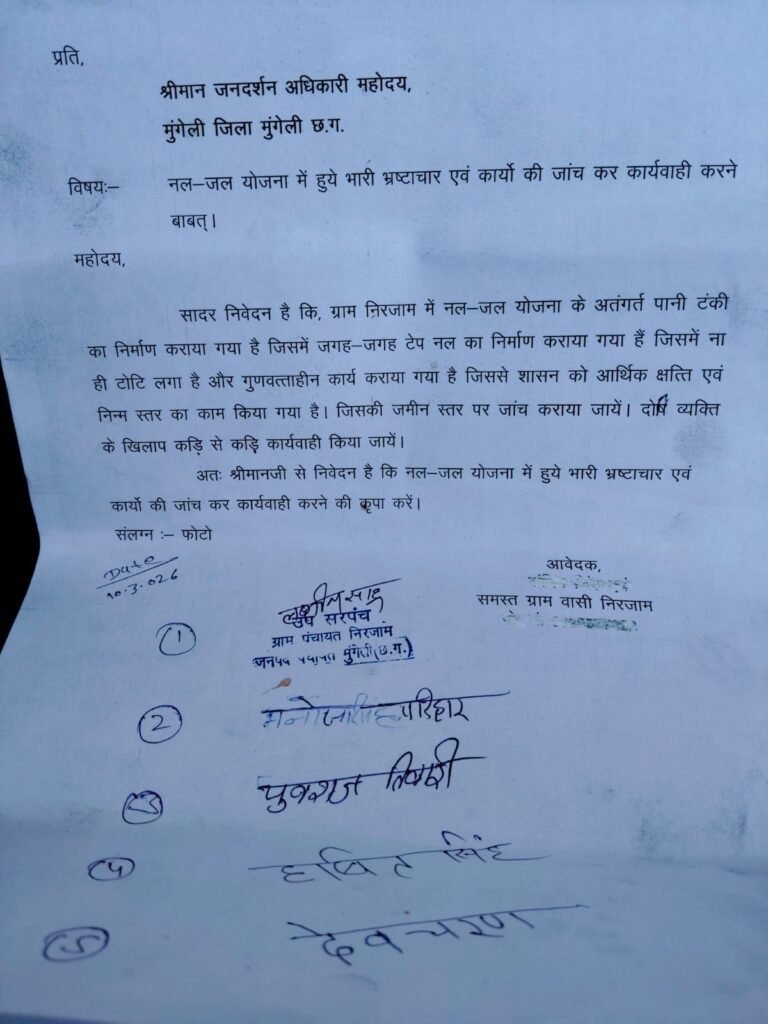 प्रति,
श्रीमान जनदर्शन अधिकारी महोदय,
मुंगेली जिला मुंगेली छ.ग.
विषयः– नल–जल योजना में हुये भारी भ्रष्टाचार एवं कार्यो की जांच कर कार्यवाही करने
बाबत्।
महोदय,
सादर निवेदन है कि, ग्राम निरजाम में नल–जल योजना के अतंगर्त पानी टंकी
का निर्माण कराया गया है जिसमें जगह–जगह टेप नल का निर्माण कराया गया हैं जिसमें ना
ही टोटि लगा है और गुणवत्ताहीन कार्य कराया गया है जिससे शासन को आर्थिक क्षत्ति एवं
निन्म स्तर का काम किया गया है। जिसकी जमीन स्तर पर जांच कराया जायें। दोषि व्यक्ति
के खिलाप कड़ि से कड़ि कार्यवाही किया जायें।
अतः श्रीमानजी से निवेदन है कि नल–जल योजना में हुये भारी भ्रष्टाचार एवं
कार्यो की जांच कर कार्यवाही करने की कृपा करें।
संलग्न :– फोटो
Date
10.3.026
आवेदक,
समस्त ग्राम वासी निरजाम
(1) साहू
उप सरपंच
ग्राम पंचायत निरजाम
जनपद पंचायत मुंगेली (छ.ग.)
(2) मनोज सिंह परिहार
(3) युवराज तिवारी
(4) सिंह
(5) देवचरण